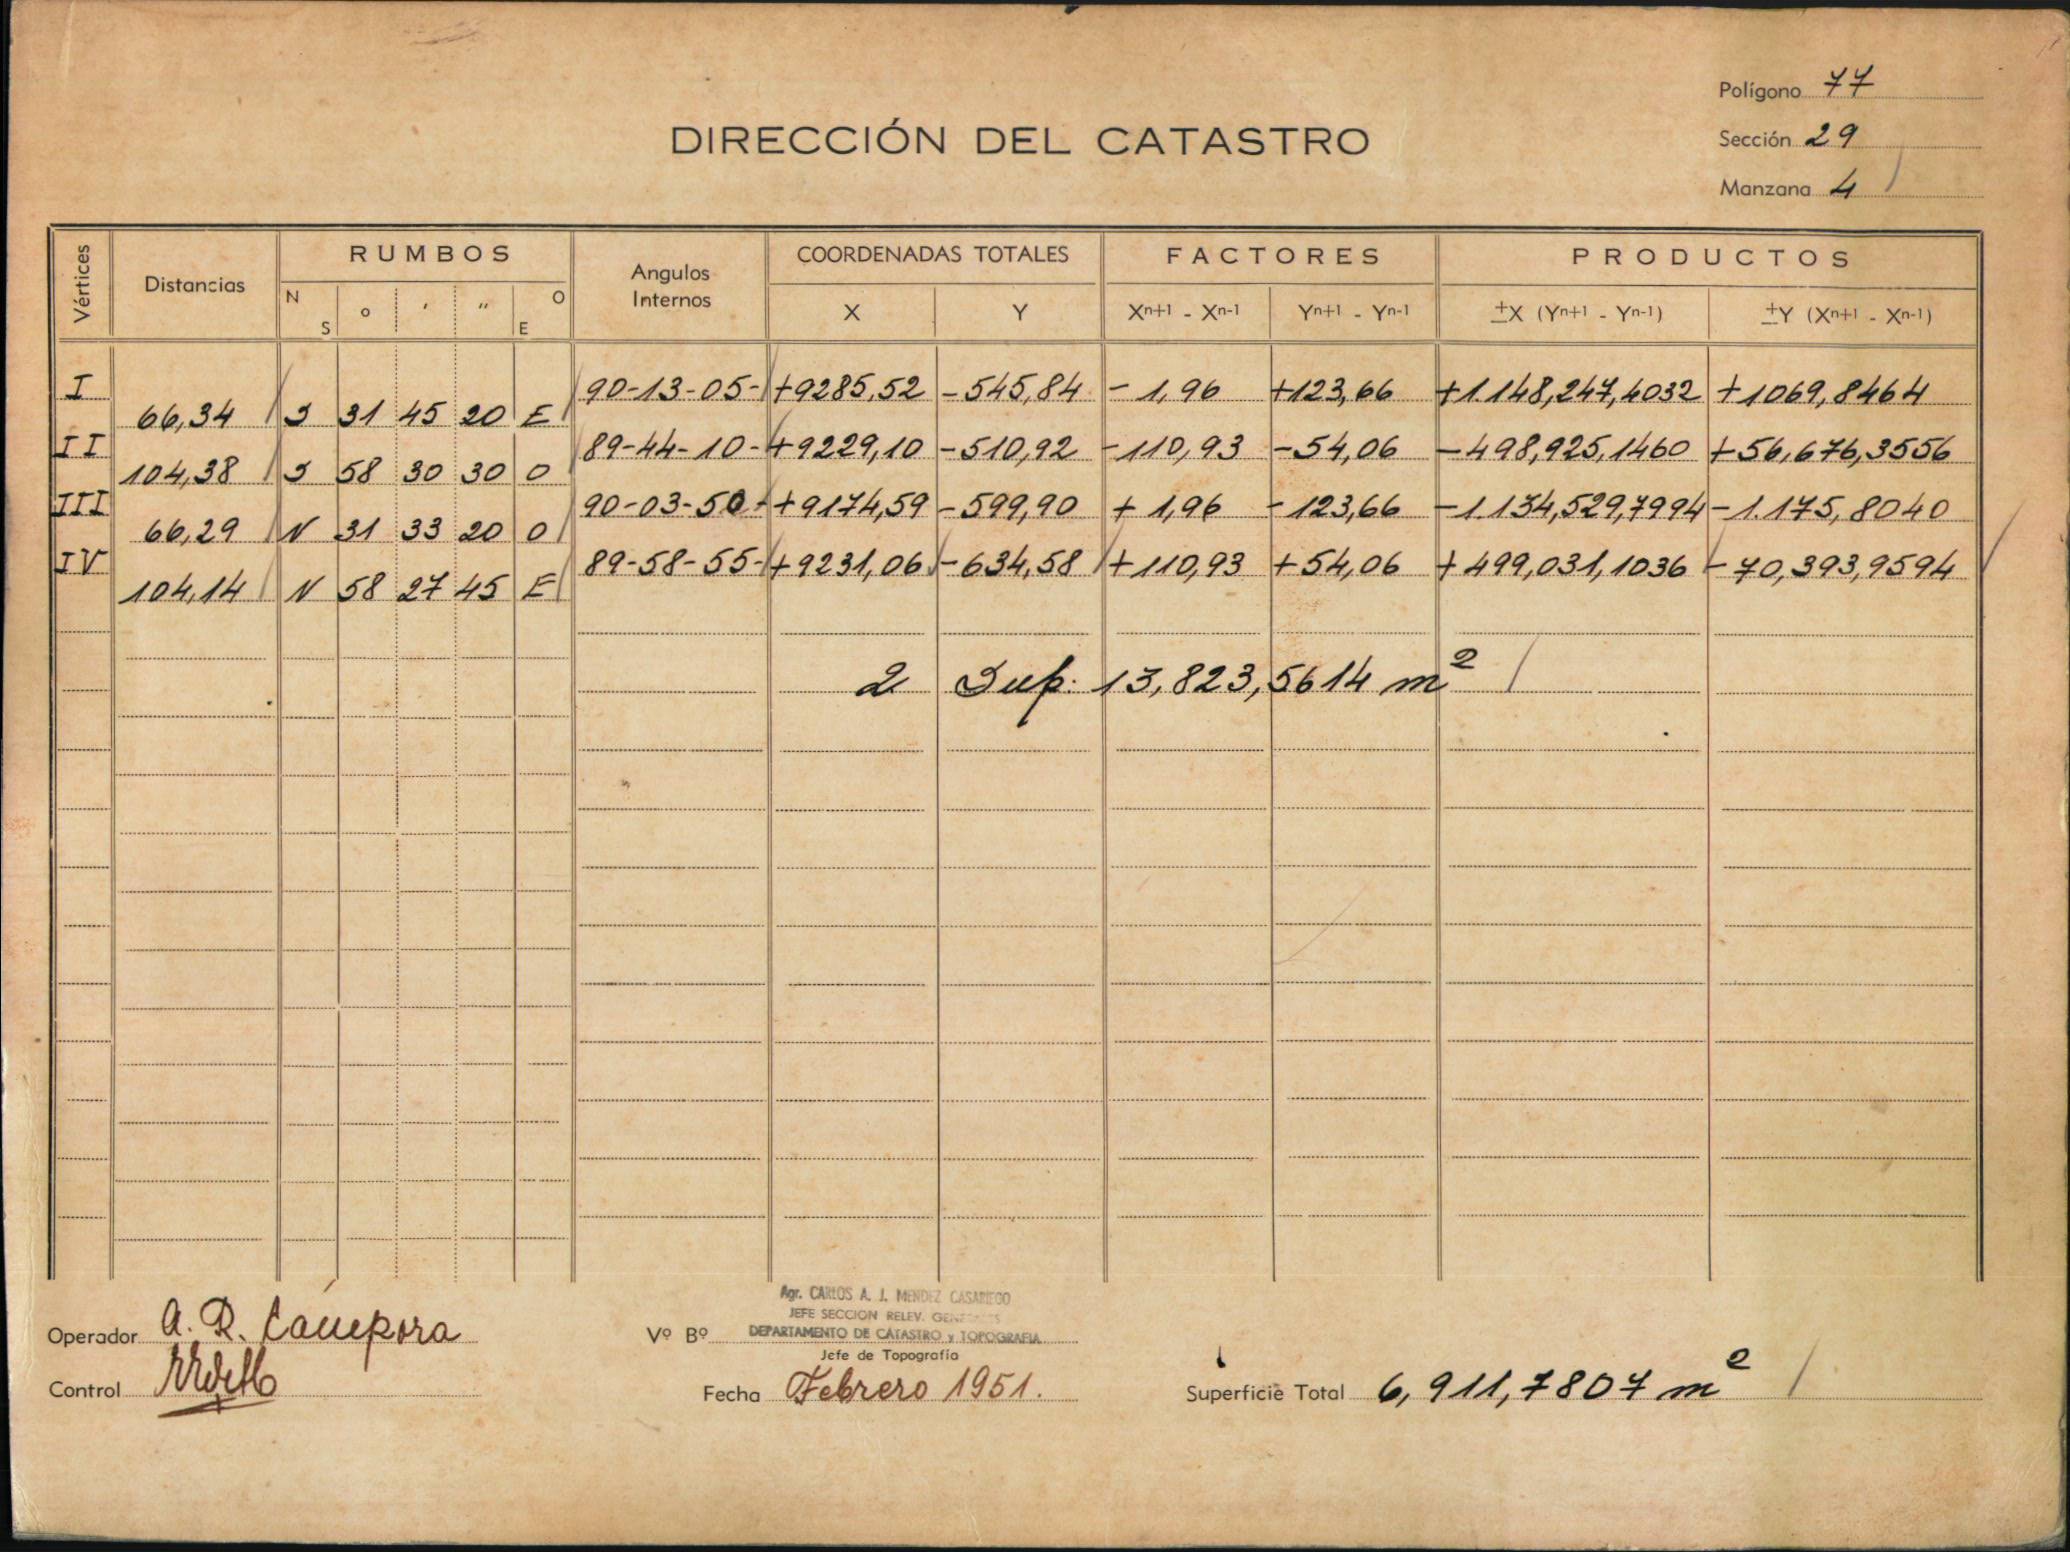 Polígono 77
DIRECCIÓN DEL CATASTRO
Sección 29
Manzana 4
Vértices Distancias RUMBOS Angulos Internos COORDENADAS TOTALES FACTORES PRODUCTOS
N S o ' " E O X Y Xn+1 - Xn-1 Yn+1 - Yn-1 ±X (Yn+1 - Yn-1) ±Y (Xn+1 - Xn-1)
I 90-13-05- +9285,52 -545,84 - 1,96 +123,66 +1.148,247,4032 +1069,8464
66,34 S 31 45 20 E
II 89-44-10- +9229,10 -510,92 -110,93 -54,06 -498,925,1460 +56,676,3556
104,38 S 58 30 30 O
III 90-03-50- +9174,59 -599,90 + 1,96 -123,66 -1.134,529,7994 -1.175,8040
66,29 N 31 33 20 O
IV 89-58-55- +9231,06 -634,58 +110,93 +54,06 +499,031,1036 -70,393,9594
104,14 N 58 27 45 E
2 Sup. 13,823,5614 m²
Agr. CARLOS A. J. MENDEZ CASARIEGO
JEFE SECCION RELEV.
Operador A. R. Cámpora Vº Bº DEPARTAMENTO DE CATASTRO y TOPOGRAFIA
Jefe de Topografía
Control Fecha Febrero 1951. Superficie Total 6,911,7807 m²